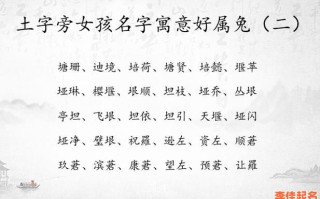 土字旁女孩名字寓意好属兔（二）
塘珊、迪境、培荷、塘贤、培懿、堰苹
垭琳、樱堰、垠顺、坦枝、垭乔、丛垠
亭坦、飞垠、坦依、坦引、天堰、垭闪
垭净、壁垠、祝羅、逊左、资左、顺莙
玖莙、滨莙、康莙、望左、预莙、让羅
李佳起名